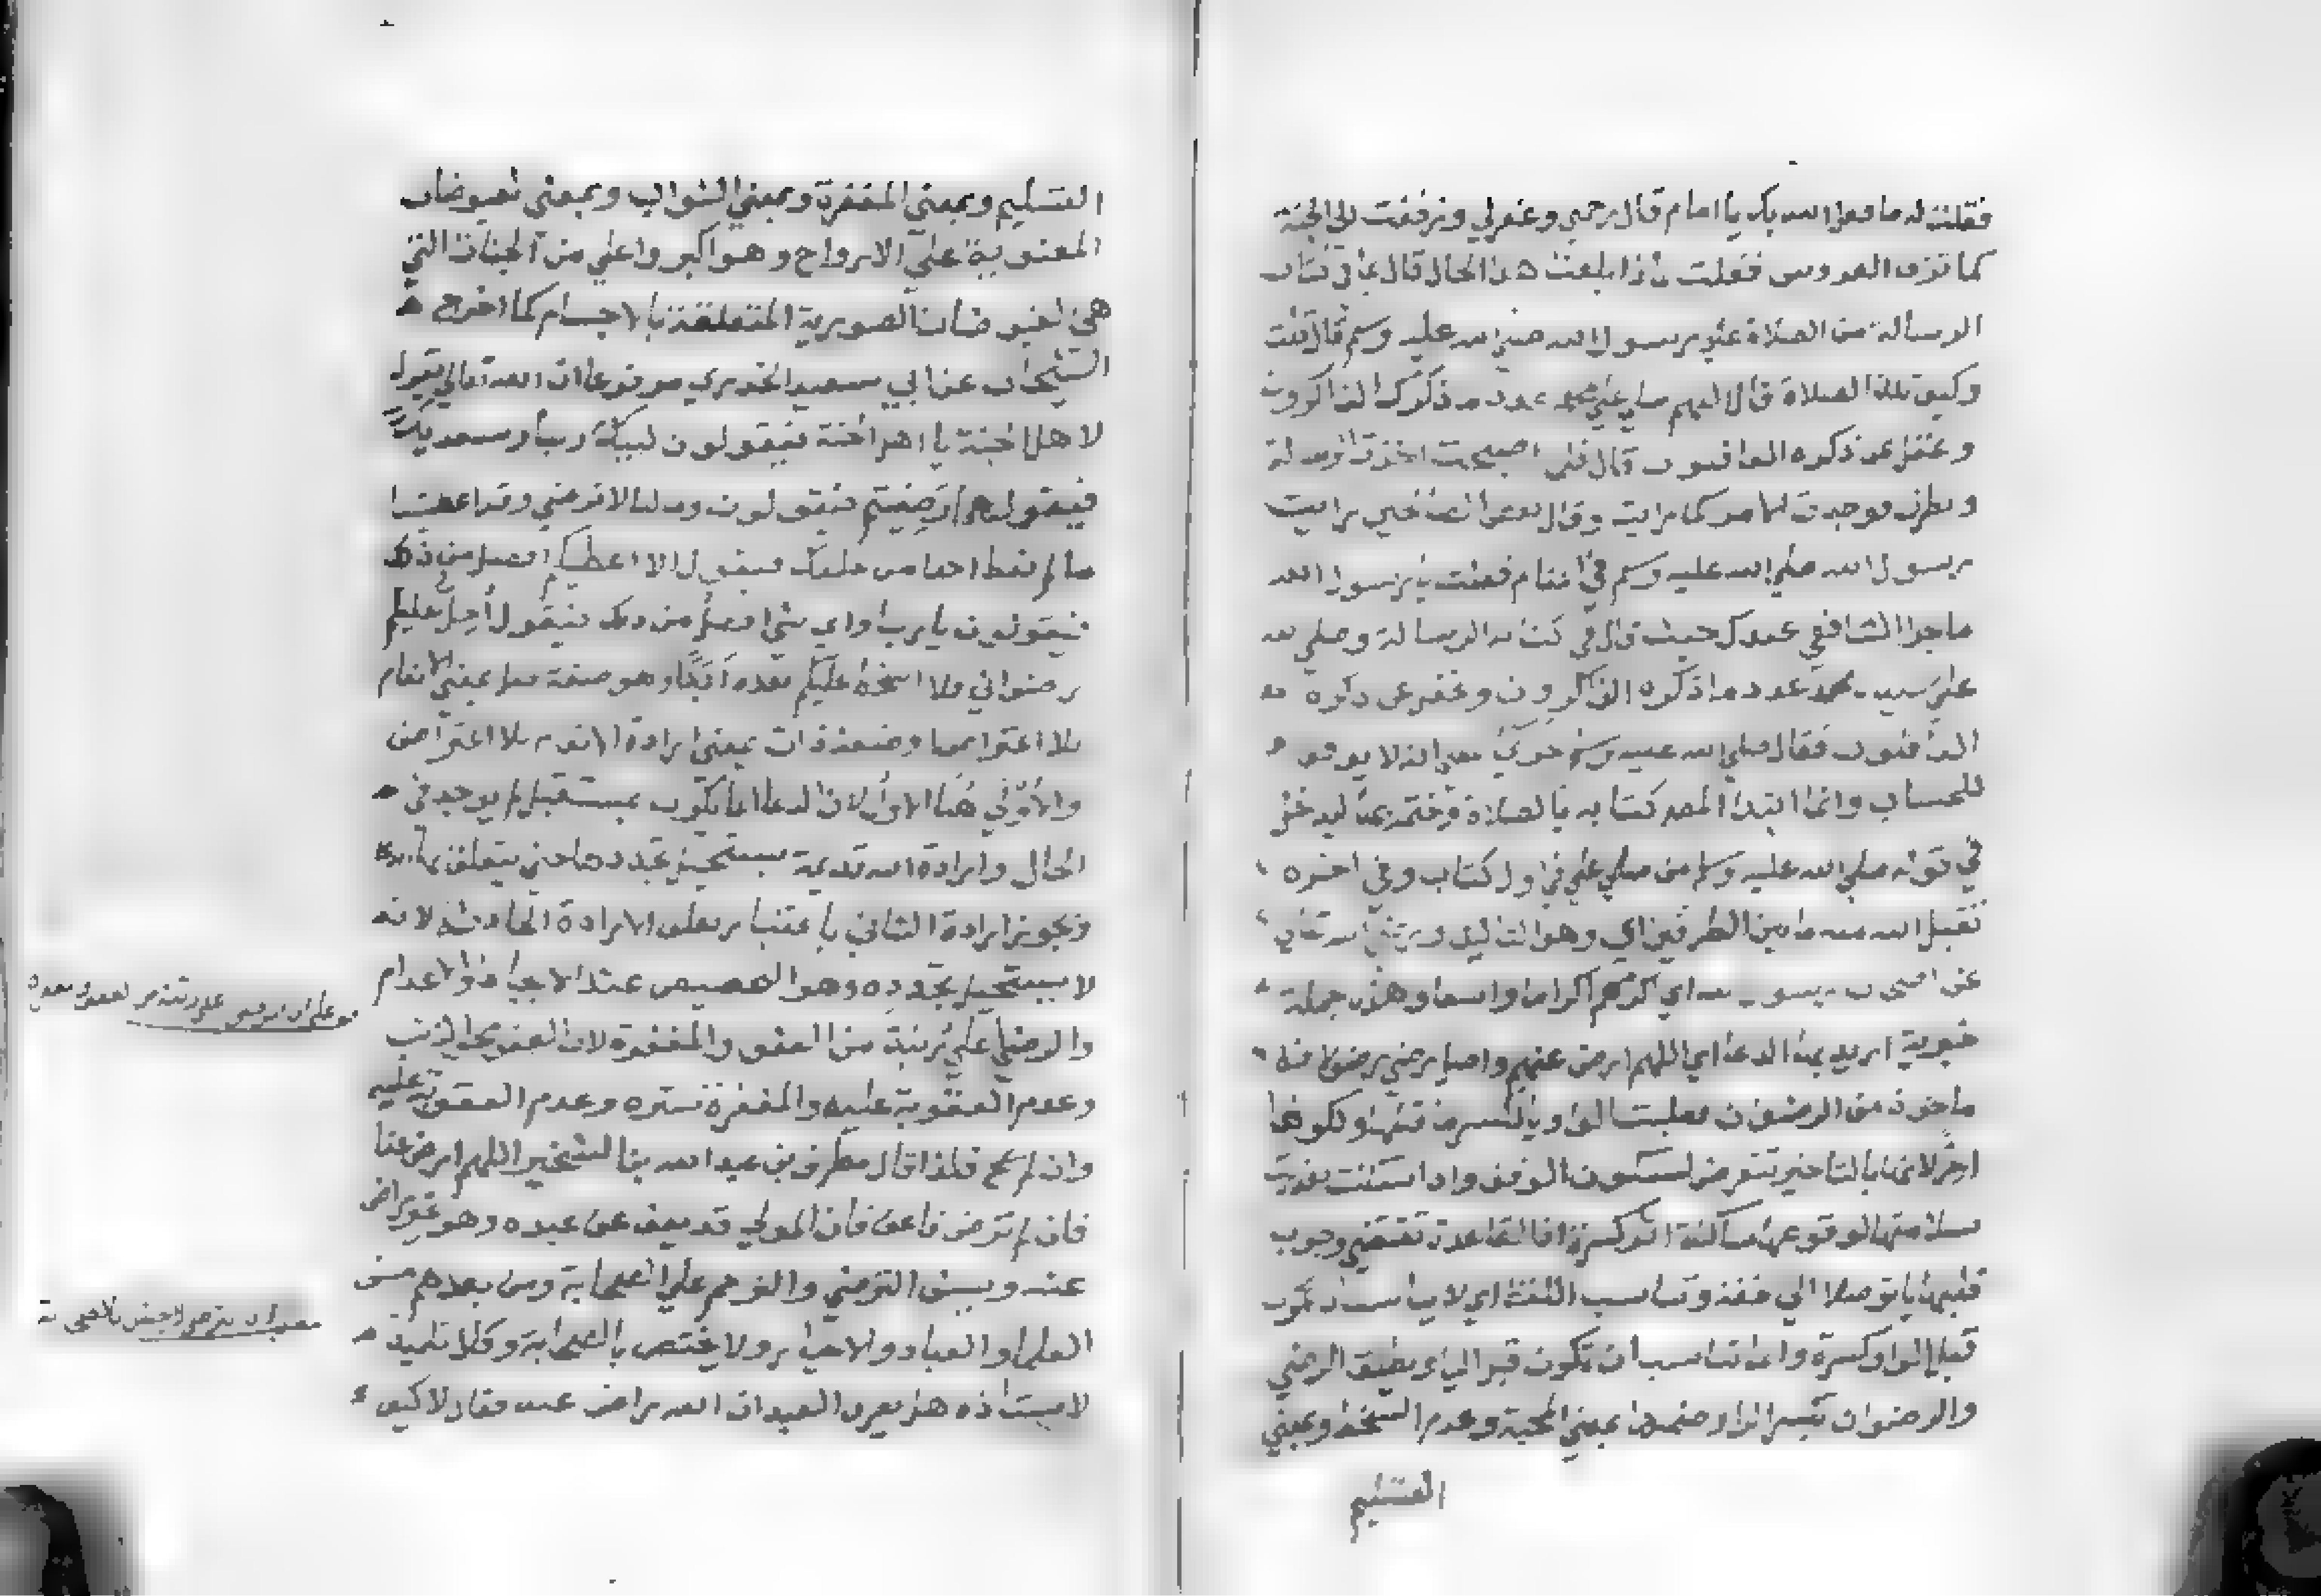 فقلت له ما فعل الله بك يا امام قال رحمني وغفرلي وزففت الى الجنة
كما تزف العروس فقلت بماذا بلغت هذا الحال قال بما في كتاب
الرسالة من الصلاة على رسول الله صلى الله عليه وسلم قال قلت
وكيف تلك الصلاة قال اللهم صلي على محمد عدد ما ذكرك الذاكرون
وغفل عن ذكره الغافلون قال فلما اصبحت اخذت الرسالة
ونظرت فوجدت الامر كما رايت وقال بعض الصالحين رايت
رسول الله صلي الله عليه وسلم في المنام فقلت يا رسول الله
ما جزا الشافعي عندك حيث قال في كتابه الرسالة وصلي الله
علي سيدنا محمد عدد ما ذكره الذاكرون وغفل عن ذكره
الغافلون فقال صلي الله عليه وسلم جوزي عني انه لا يوقف
للحساب وانما ابتدا المصنف كتابه بالصلاة وختمه بها ليدخل
في قوله صلي الله عليه وسلم من صلي علي في اول كتاب وفي اخره
تقبل الله منه ما بين الطرفين اي وهو التاليف ورضي الله تعالي
عن اصحاب رسول الله اي اكرمهم اكراما واسعا وهذه جملة
خبرية اريد بها الدعا اي اللهم ارض عنهم واصل رضي رضو
ماخوذ من الرضوان فقلبت الواو يا لكسر ما قبلها ولكونها
اخرا لانها بالتاخير تتعرض لسكون الوقف واذا سكنت تعذرت
سلامتها لوقوعها ساكنة اثر كسرة اذ القاعدة تقتضي وجوب
قلبها يا توصلا الي خفة وتناسب اللفظ اي لا يناسب ان تكون
قبل الواو كسرة وانما تناسب ان تكون قبل اليا ويطلق الرضي
والرضوان بكسر الرا وضمها بمعني المحبة وعدم السخط وبمعني
التسليم
التسليم وبمعني المغفرة وبمعني الثواب وبمعني الفيوضات
المعنوية علي الارواح وهو اكبر واعلي من الجنات التي
هي الفيوضات الصورية المتعلقة بالاجسام كما اخرج
الشيخان عن ابي سعيد الخدري مرفوعا ان الله تعالي يقول
لاهل الجنة يا اهل الجنة فيقولون لبيك ربنا وسعديك
فيقول هل رضيتم فيقولون وما لنا لا نرضي وقد اعطيتنا
ما لم تعط احدا من خلقك فيقول الا اعطيكم افضل من ذلك
فيقولون يا رب واي شي افضل من ذلك فيقول احل عليكم
رضواني فلا اسخط عليكم بعده ابدا وهو صفة فعل بمعني الانعام
بلا اعتراض وصفة ذات بمعني ارادة الانعام بلا اعتراض
والاولي هنا الاول لان الدعا انما يكون بمستقبل لم يوجد في
الحال وارادة الله قديمة يستحيل تجددها حتي يتعلق بها الدعا
ويجوز ارادة الثاني باعتبار تعلق الارادة الحادث لانه
لا يستحيل تجدده وهو التخصيص عند الايجاد والاعدام
والرضي اعلي رتبة من العفو والمغفرة لان العفو محو الذنب
وعدم العقوبة عليه والمغفرة ستره وعدم العقوبة عليه
وان لم يمح فلذا قال مطرف بن عبد الله بن الشخير اللهم ارض عنا
فان لم ترض فاعف فان المولي قد يعف عن عبده وهو غير راض
عنه ويسن الترضي والترحم علي الصحابة ومن بعدهم من
العلما والعباد والاخيار ولا يختص بالصحابة وقال تلميذ
لاستاذه هل يعرف العبد ان الله راض عنه فقال لا كيف